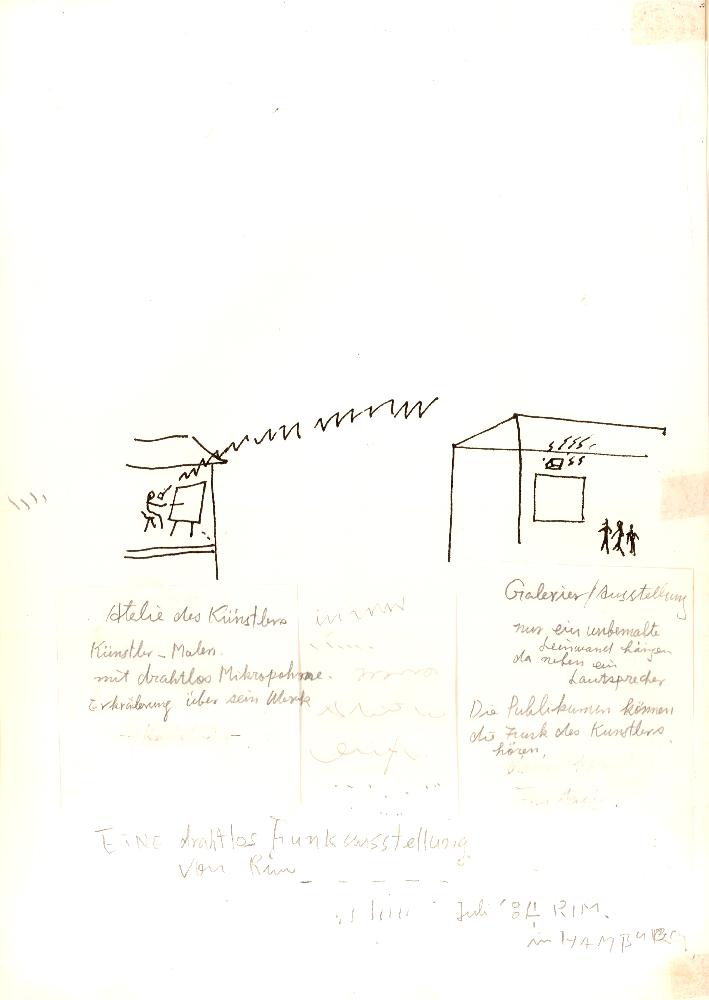 Atelie des Künstlers
Künstler - Malen.
mit drahtlos Mikropohne.
Erkrälerung über sein Werk
Galerier/Ausstellung
nur ein unbemalte
Leinwand hängen
da neben ein
Lautsprecher
Die Publikumen können
die Funk des Künstlers
hören.
EINE drahtlos Funkausstellung
von Rim
Juli '84 RIM.
in HAMBURG